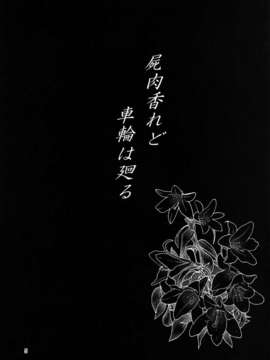 屍肉香れど
車輪は廻る